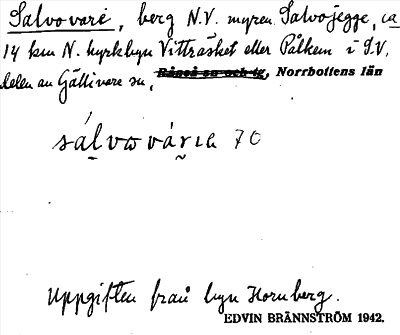 Salvovare, berg N.V. myren Salvojegge, ca
14 km N. kyrkbyn Vitträsket eller Pålkem i S.V.
delen av Gällivare sn, Råneå sn och tg, Norrbottens län
sálvovárıa 70
Uppgiften från byn Hornberg.
EDVIN BRÄNNSTRÖM 1942.